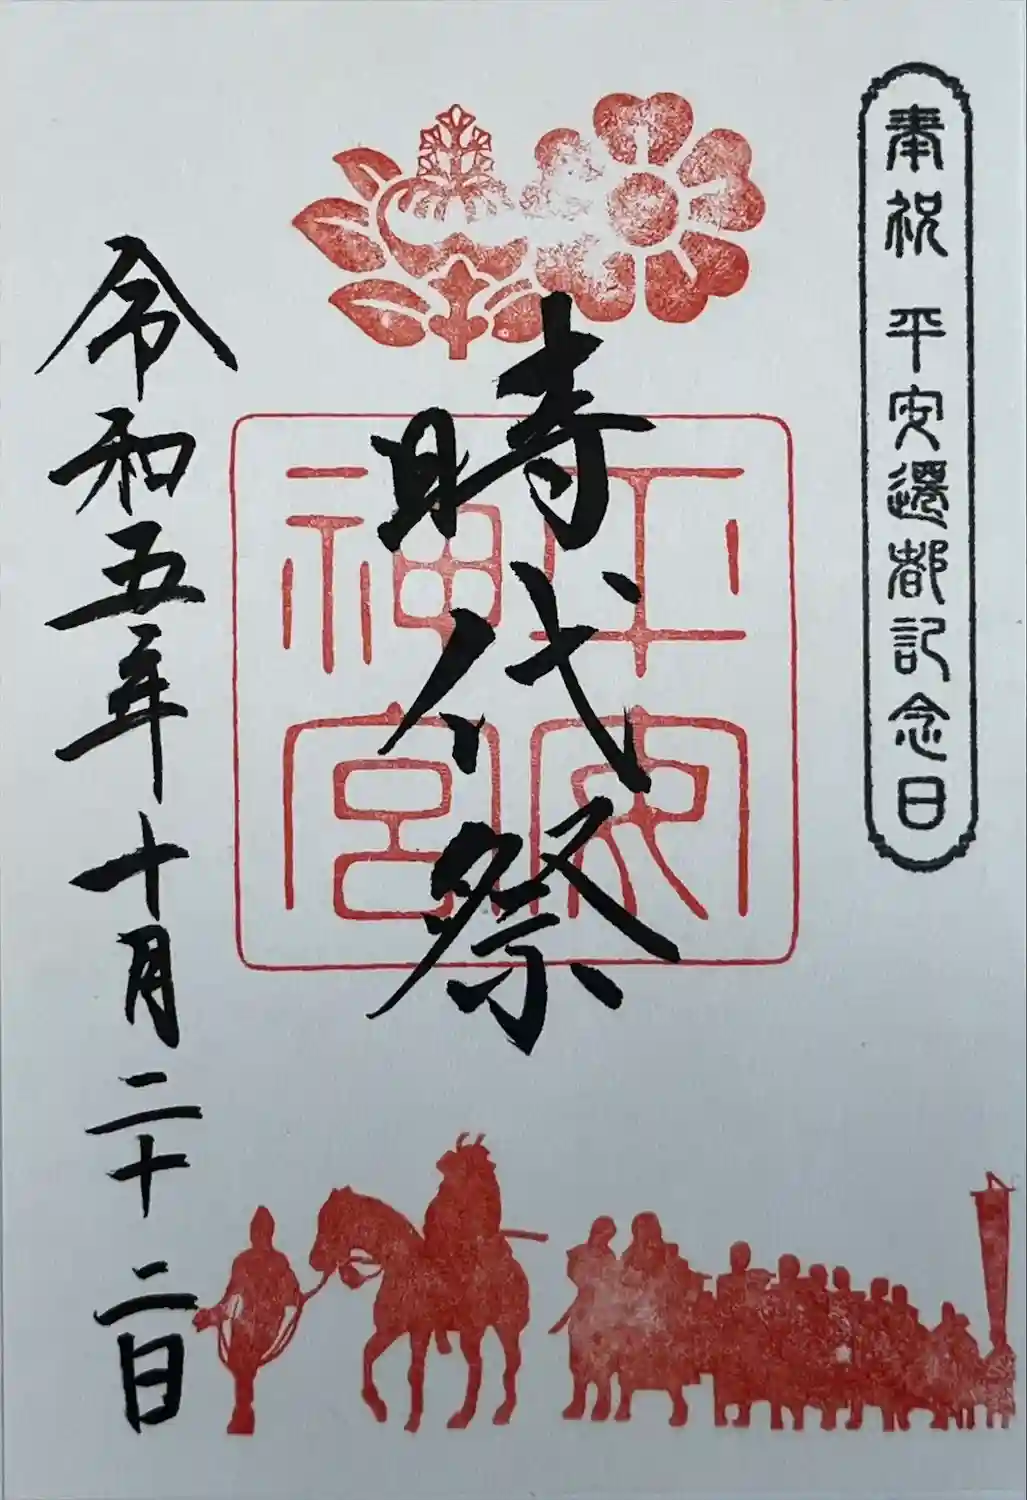 奉祝 平安遷都記念日
平安
神宮
時代祭
令和五年十月二十二日